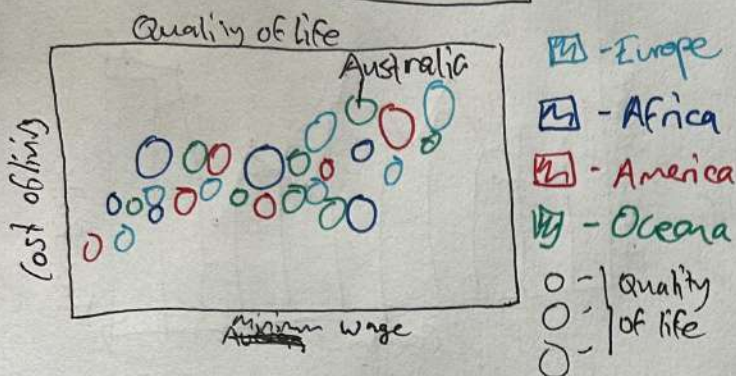 Quality of life
Australia
Cost of living
Minimum wage
- Europe
- Africa
- America
- Oceana
Quality
of life